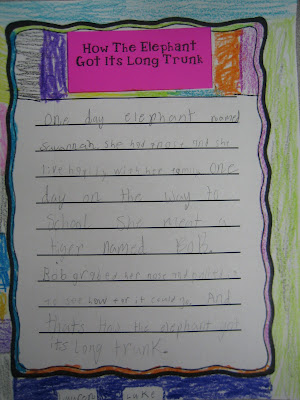 How The Elephant
Got Its Long Trunk
one day elephant named
Savannah. She had a nose and she
live happily with her family one
day on the way to
School. She meet a
tiger named Bob.
Bob grabed her nose and
to see how far it could go. And
thats how the elephant got
its long trunk.
Lake